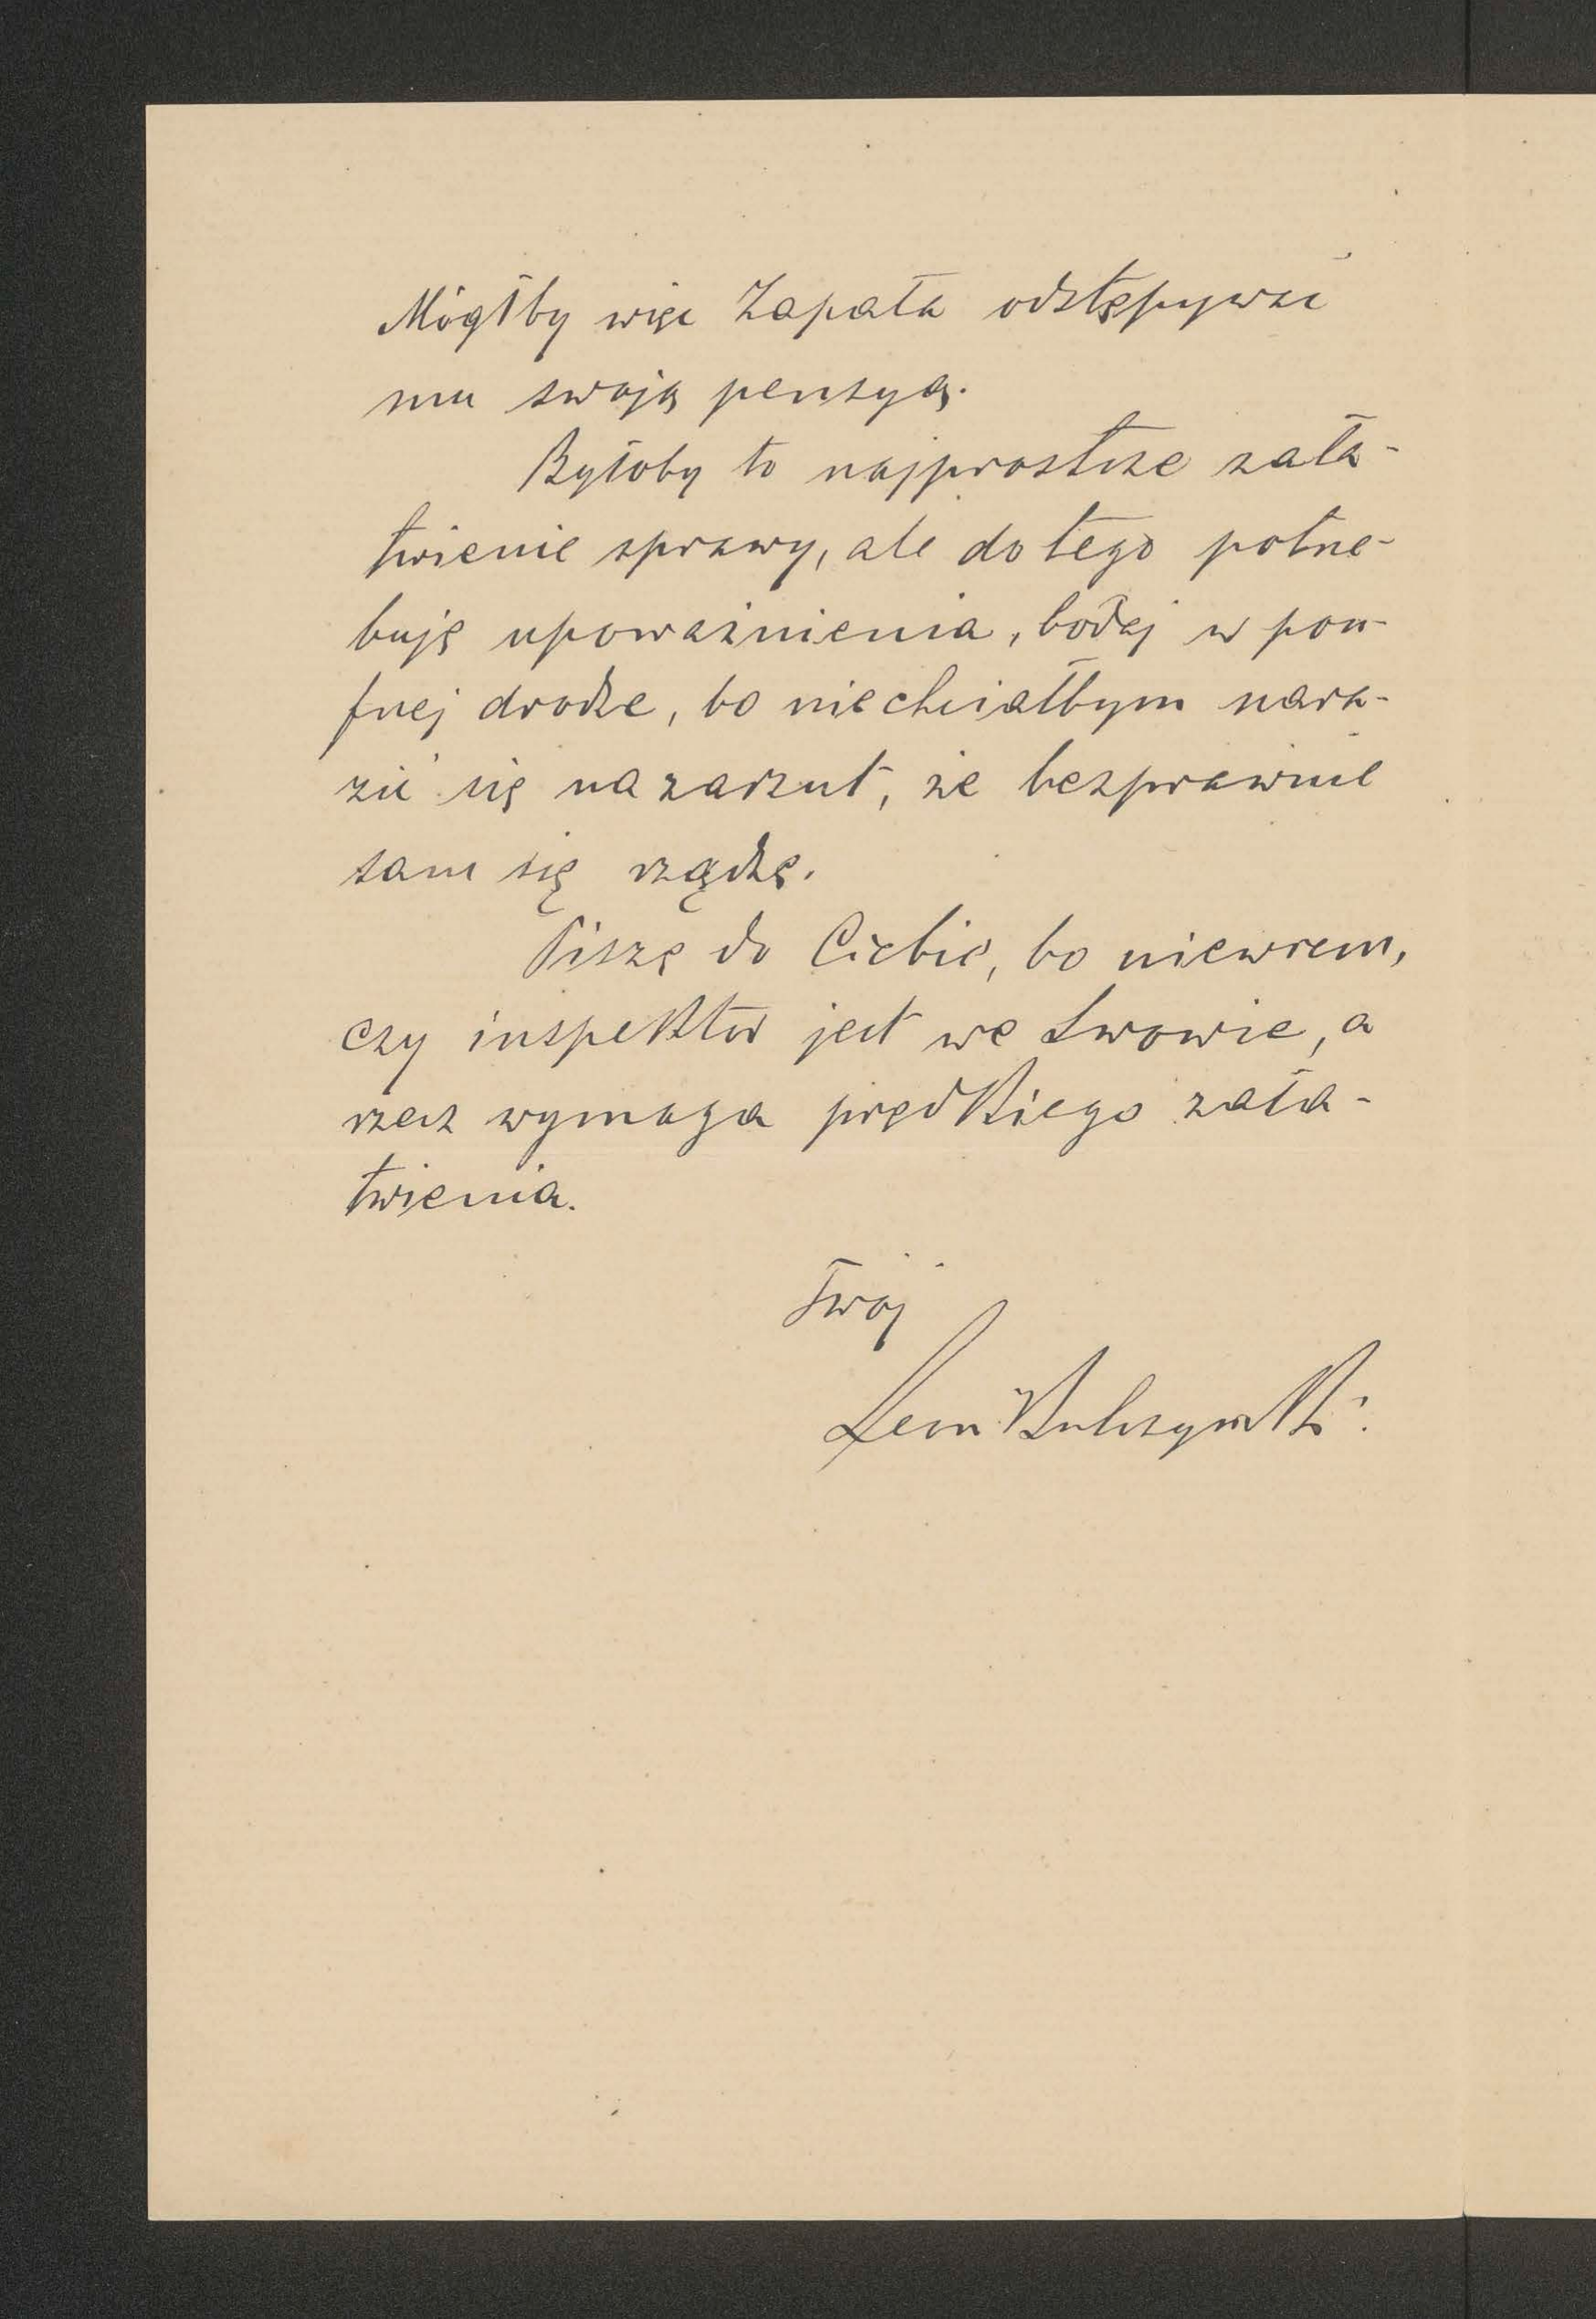 Mógłby więc Zapała odstępywać
mu swoją pensyą.
Byłoby to najprostsze zała-
twienie sprawy, ale do tego potrze-
buję upoważnienia, bodaj w pou-
fnej drodze, bo nie chciałbym nara-
zić się na zarzut, że bezprawnie
sam się rządzę.
Piszę do Ciebie, bo niewiem,
czy inspektor jest we Lwowie, a
rzecz wymaga prędkiego zała-
twienia.
Twój
Leon